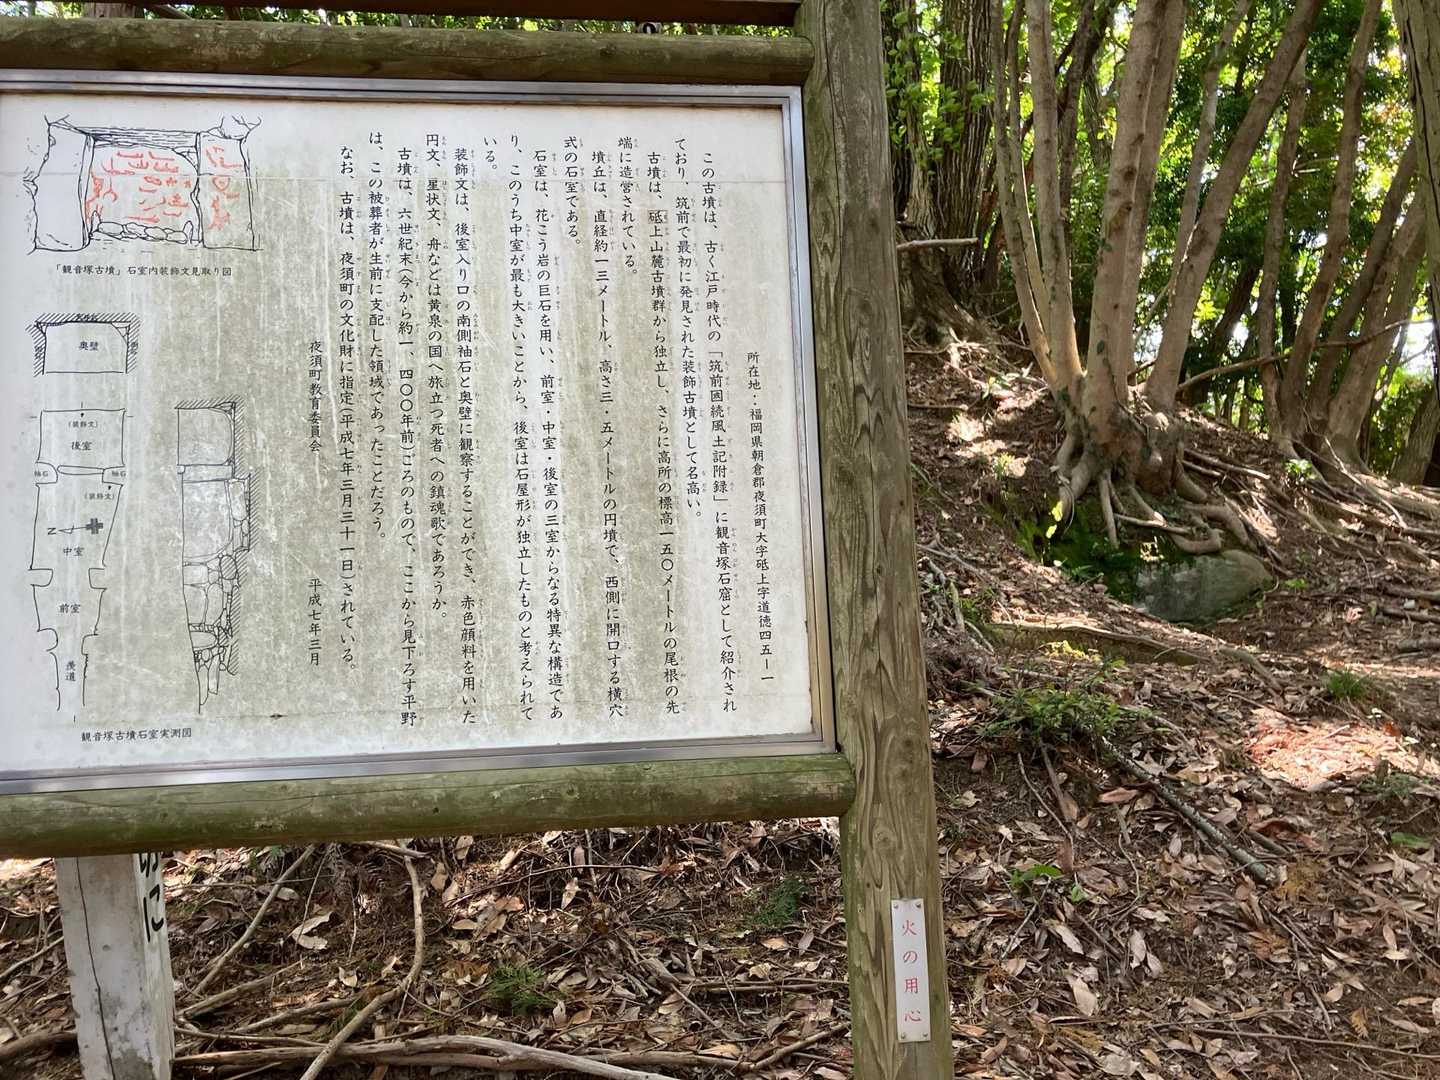 所在地：福岡県朝倉郡夜須町大字砥上字道徳四五ー一
この古墳は、古く江戸時代の「筑前國続風土記附録」に観音塚石窟として紹介され
ており、筑前で最初に発見された装飾古墳として名高い。
古墳は、砥上山麓古墳群から独立し、さらに高所の標高一五〇メートルの尾根の先
端に造営されている。
墳丘は、直径約一三メートル・高さ三・五メートルの円墳で、西側に開口する横穴
式の石室である。
石室は、花こう岩の巨石を用い、前室・中室・後室の三室からなる特異な構造であ
り、このうち中室が最も大きいことから、後室は石屋形が独立したものと考えられて
いる。
装飾文は、後室入り口の南側袖石と奥壁に観察することができ、赤色顔料を用いた
円文、星状文、舟などは黄泉の国へ旅立つ死者への鎮魂歌であろうか。
古墳は、六世紀末(今から約一、四〇〇年前)ごろのもので、ここから見下ろす平野
は、この被葬者が生前に支配した領域であったことだろう。
なお、古墳は、夜須町の文化財に指定(平成七年三月三十一日)されている。
平成七年三月
夜須町教育委員会
「観音塚古墳」石室内装飾文見取り図
奥壁
(装飾文)
後室
袖石
袖石
(装飾文)
N
中室
前室
羨道
観音塚古墳石室実測図
火の用心